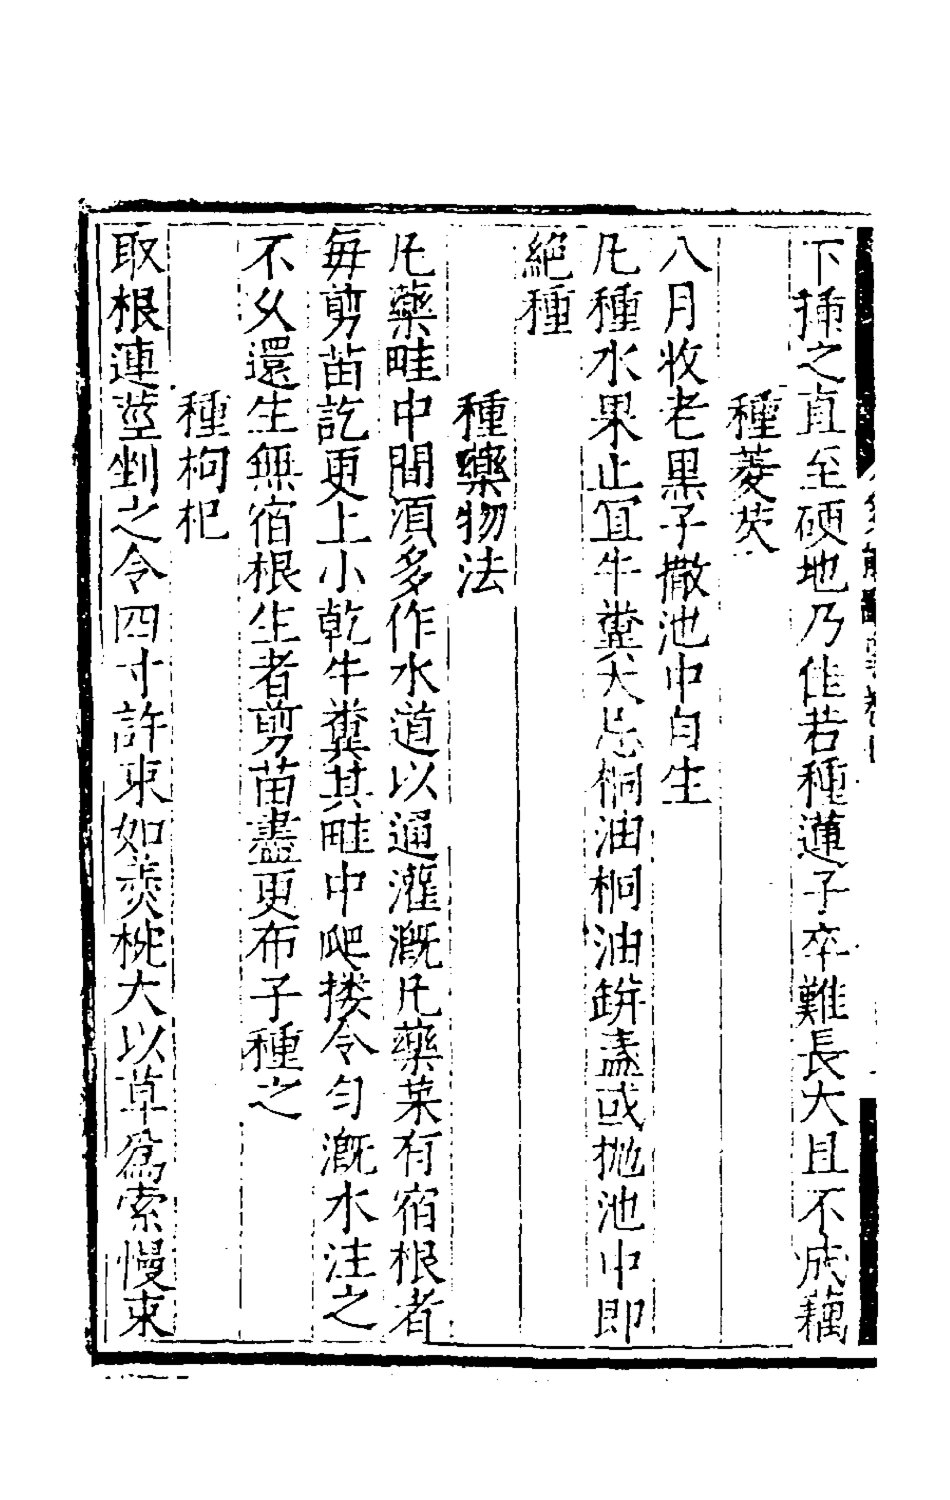 下揷之直至硬地乃佳若種蓮子卒難長大且不成藕
種菱芡
八月收老黒子撒池中自生
凡種水果止冝牛糞大忌桐油桐油缾盞或抛池中即
絕種
種藥物法
凡藥畦中間湏多作水道以通灌漑凡藥菜有宿根者
毎剪苗訖更上小乾牛糞其畦中爬摟令匀漑水注之
不乆還生無宿根生者剪苗盡更布子種之
種枸杞
取根連莖剉之令四寸許束如羮桃大以草爲索慢束